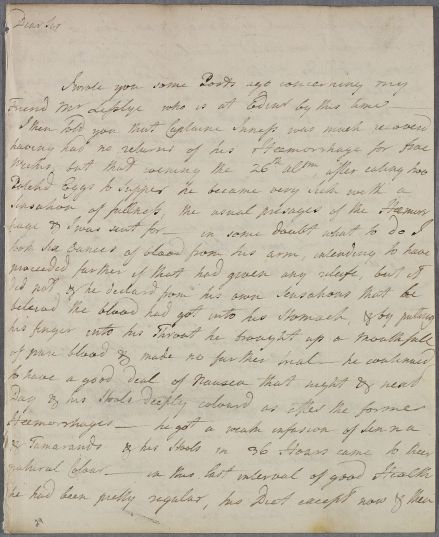 Dear Sir
I wrote you some Posts ago concerning my
Friend Mr Leslye who is at Edinr by this time
I then told you that Captaine Inness was much recovered
having had no returns of his Hæmorrhage for five
weeks, but that evening the 26th ultm, after eating two
Potch'd Eggs to supper he became very sick with a
Sensation of fullness, the usual presages of the Hæmor
hage & I was sent for — in some doubt what to do I
took six ounces of blood from his arm, intending to have
proceeded farther if that had given any releife, but it
did not, & he declar'd from his own Sensations that he
beleved the blood had got into his Stomach & by putting
his finger into his Throat he brought up a Mouthfull
of pure blood & made no further trial — he continued
to have a good deal of Nausea that night & next
Day & his Stools deeply colour'd as after the former
Hæmorrhages — he got a weak infusion of Senna
& Tamarands & his Stools in 36 Hours came to their
natural Colour — in this last interval of good Health
he had been pretty regular, his Diet except now & then